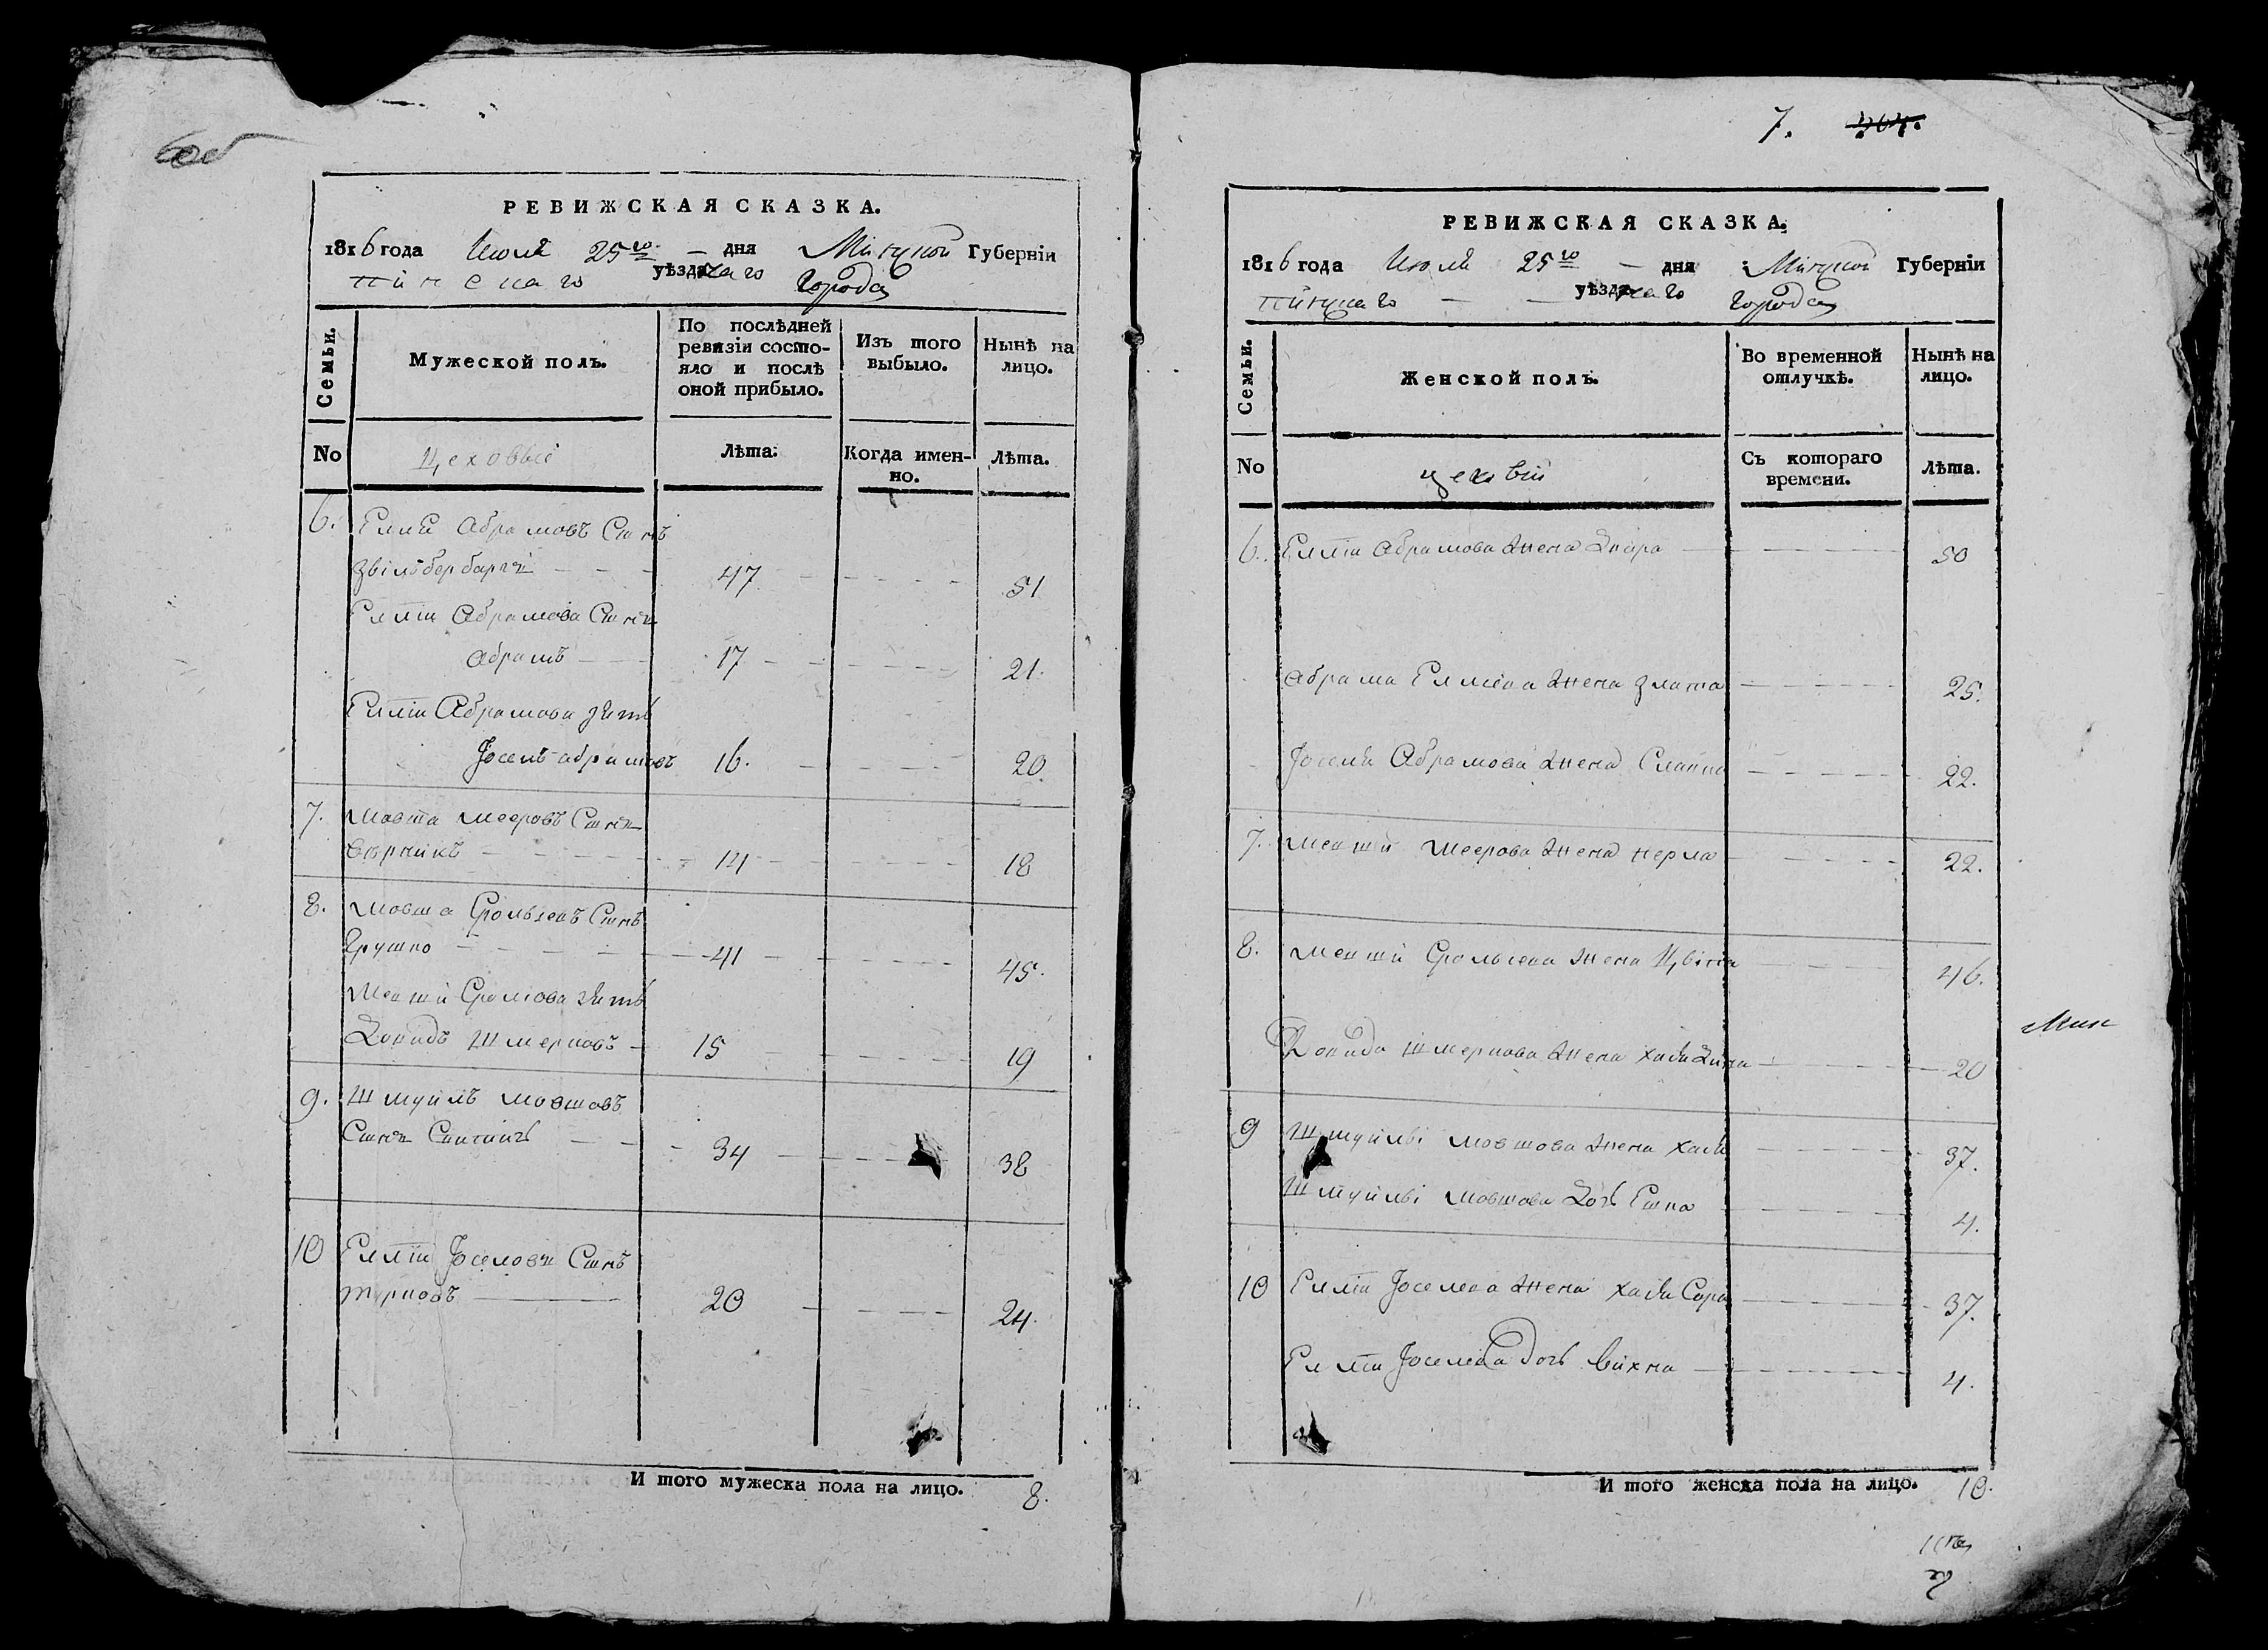 РЕВИЖСКАЯ СКАЗКА.
1816 года Июля 25го дня Минской Губерніи
Пинскаго уѣзднаго Города
Семьи.
Мужеской полъ.
По послѣдней
ревизіи состо-
яло и послѣ
оной прибыло.
Изъ того
выбыло.
Нынѣ на
лицо.
No
Цеховыѣ
Лѣта.
Когда имен-
но.
Лѣта.
6. Елья Абрамовъ Сынъ
47 51
Ельи Абрамова Сынъ
Абрамъ 17 21.
Ельи Абрамова зять
Іосель Абрамовъ 16. 20.
7. Мовша Мееровъ Сынъ
14 18
8. Мовша Срольевъ Сынъ
Грушко 41 45.
Мовши Сролова зять
Довидъ Шмерковъ 15 19
9. Шмуйлъ Мовшовъ
Сынъ 34 38
10 Ельи Іоселовъ Сынъ
20 24.
И того мужеска пола на лицо. 8.
7. 304.
РЕВИЖСКАЯ СКАЗКА.
1816 года Июля 25го дня Минской Губерніи
Пинскаго уѣзднаго города
Семьи.
Женской полъ.
Во временной
отлучкѣ.
Нынѣ на
лицо.
No
цеховіи
Съ котораго
времени.
Лѣта.
6. Ельи Абрамова Жена 50
Абрама Ельева Жена Злата 25.
Іоселя Абрамова Жена 22.
7. Мовши Меерова Жена 22.
8. Мовши Срольева Жена 46.
Довида Шмеркова Жена 20
9 Шмуйлы Мовшова Жена Хая 37.
Шмуйлы Мовшова Дочь 4.
10 Ельи Іоселева Жена Хая Сора 37.
Ельи Іоселева дочь Вихна 4.
И того женска пола на лицо. 10.